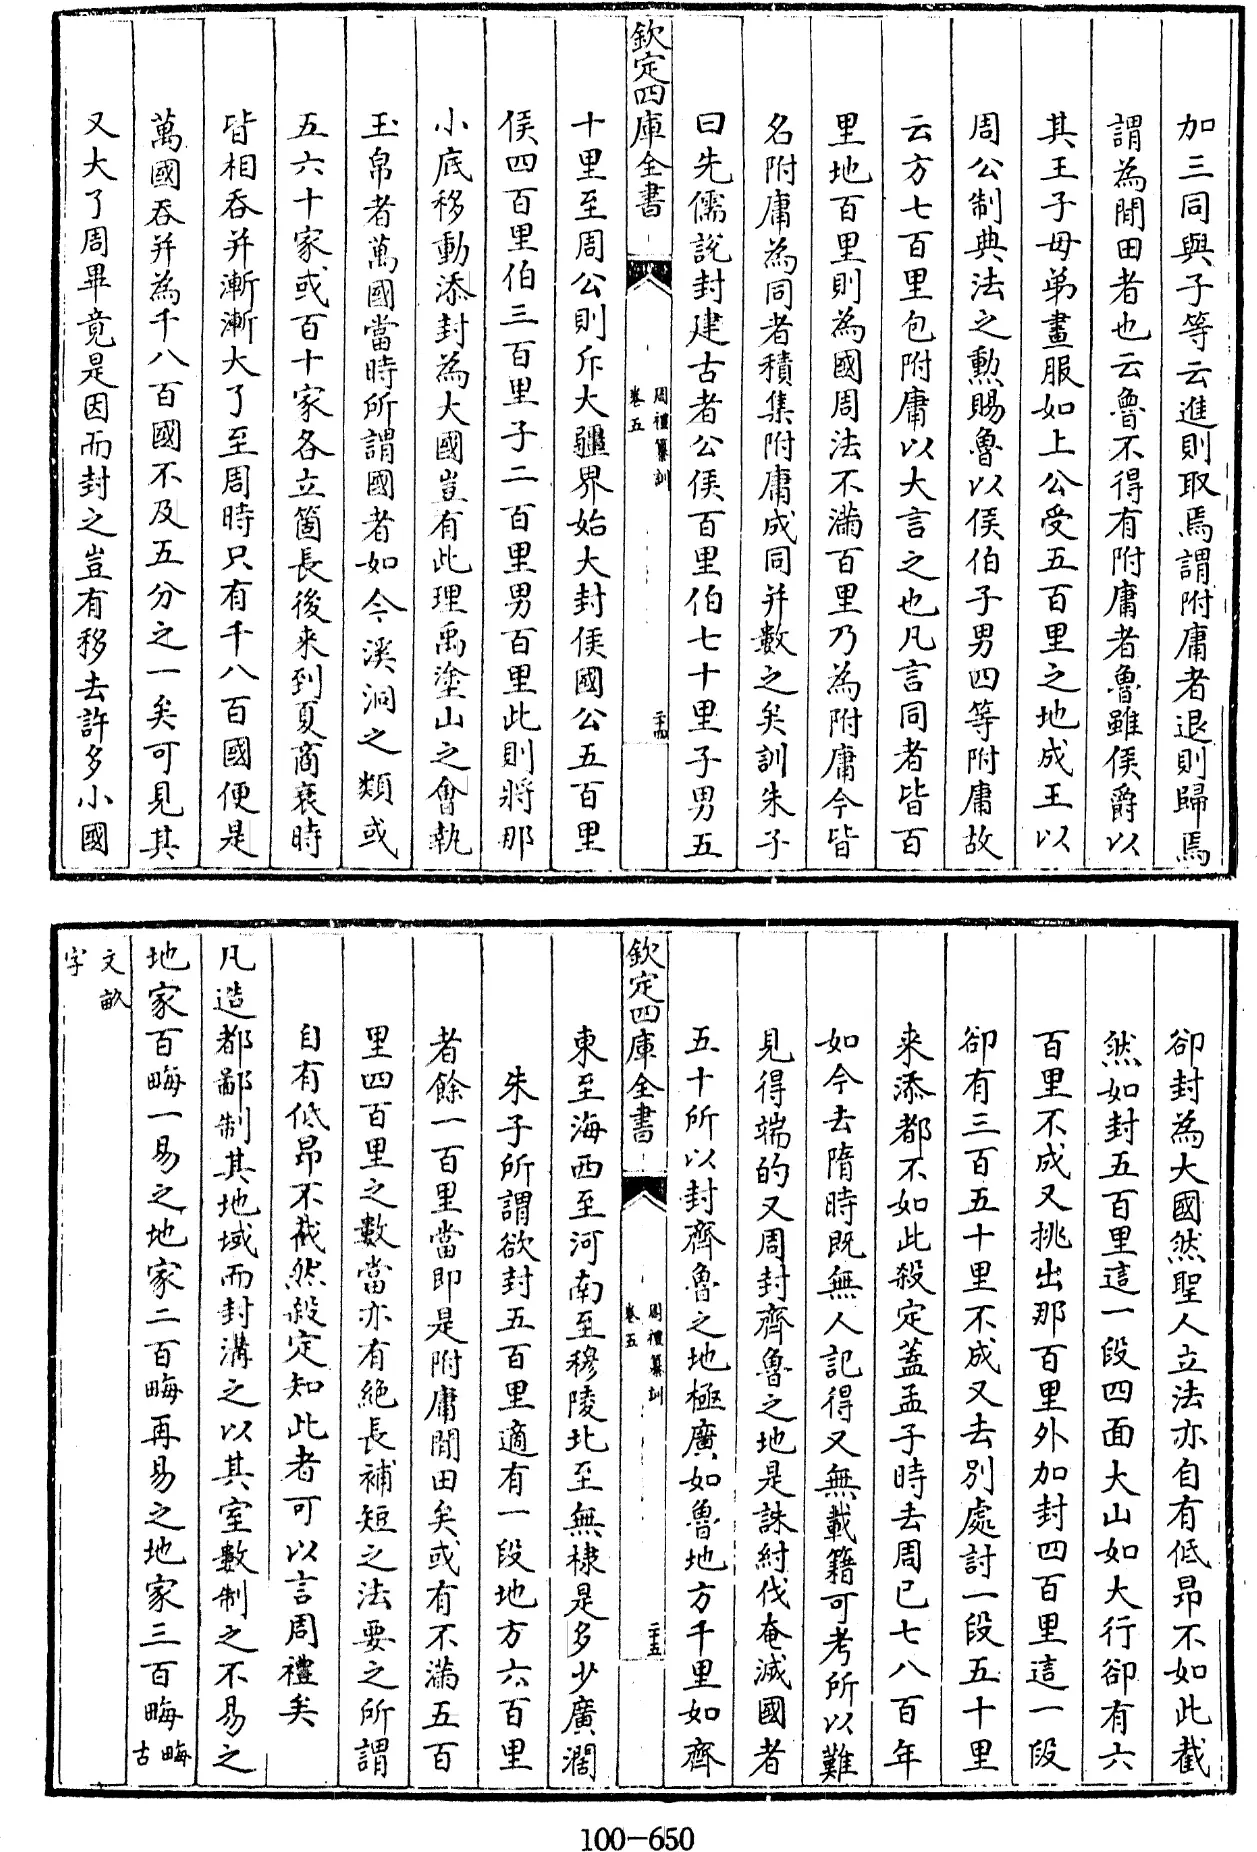 加三同與子等云進則取焉謂附庸者退則歸焉
謂為閒田者也云魯不得有附庸者魯雖侯爵以
其王子母弟畫服如上公受五百里之地成王以
周公制典法之勲賜魯以侯伯子男四等附庸故
云方七百里包附庸以大言之也凡言同者皆百
里地百里則為國周法不滿百里乃為附庸今皆
名附庸為同者積集附庸成同并數之矣訓朱子
曰先儒說封建古者公侯百里伯七十里子男五
欽定四庫全書
周禮纂訓
卷五
二十四
十里至周公則斥大疆界始大封侯國公五百里
侯四百里伯三百里子二百里男百里此則將那
小底移動添封為大國豈有此理禹塗山之會執
玉帛者萬國當時所謂國者如今溪洞之類或
五六十家或百十家各立箇長後来到夏商衰時
皆相吞并漸漸大了至周時只有千八百國便是
萬國吞并為千八百國不及五分之一矣可見其
又大了周畢竟是因而封之豈有移去許多小國
卻封為大國然聖人立法亦自有低昂不如此截
然如封五百里這一段四面大山如大行卻有六
百里不成又挑出那百里外加封四百里這一段
卻有三百五十里不成又去別處討一段五十里
来添都不如此殺定蓋孟子時去周已七八百年
如今去隋時既無人記得又無載籍可考所以難
見得端的又周封齊魯之地是誅紂伐奄滅國者
五十所以封齊魯之地極廣如魯地方千里如齊
欽定四庫全書
周禮纂訓
卷五
二十五
東至海西至河南至穆陵北至無棣是多少廣濶
朱子所謂欲封五百里適有一段地方六百里
者餘一百里當即是附庸閒田矣或有不滿五百
里四百里之數當亦有絶長補短之法要之所謂
自有低昂不截然殺定知此者可以言周禮矣
凡造都鄙制其地域而封溝之以其室數制之不易之
地家百畮一易之地家二百畮再易之地家三百畮畮古
文畝
字
100-650